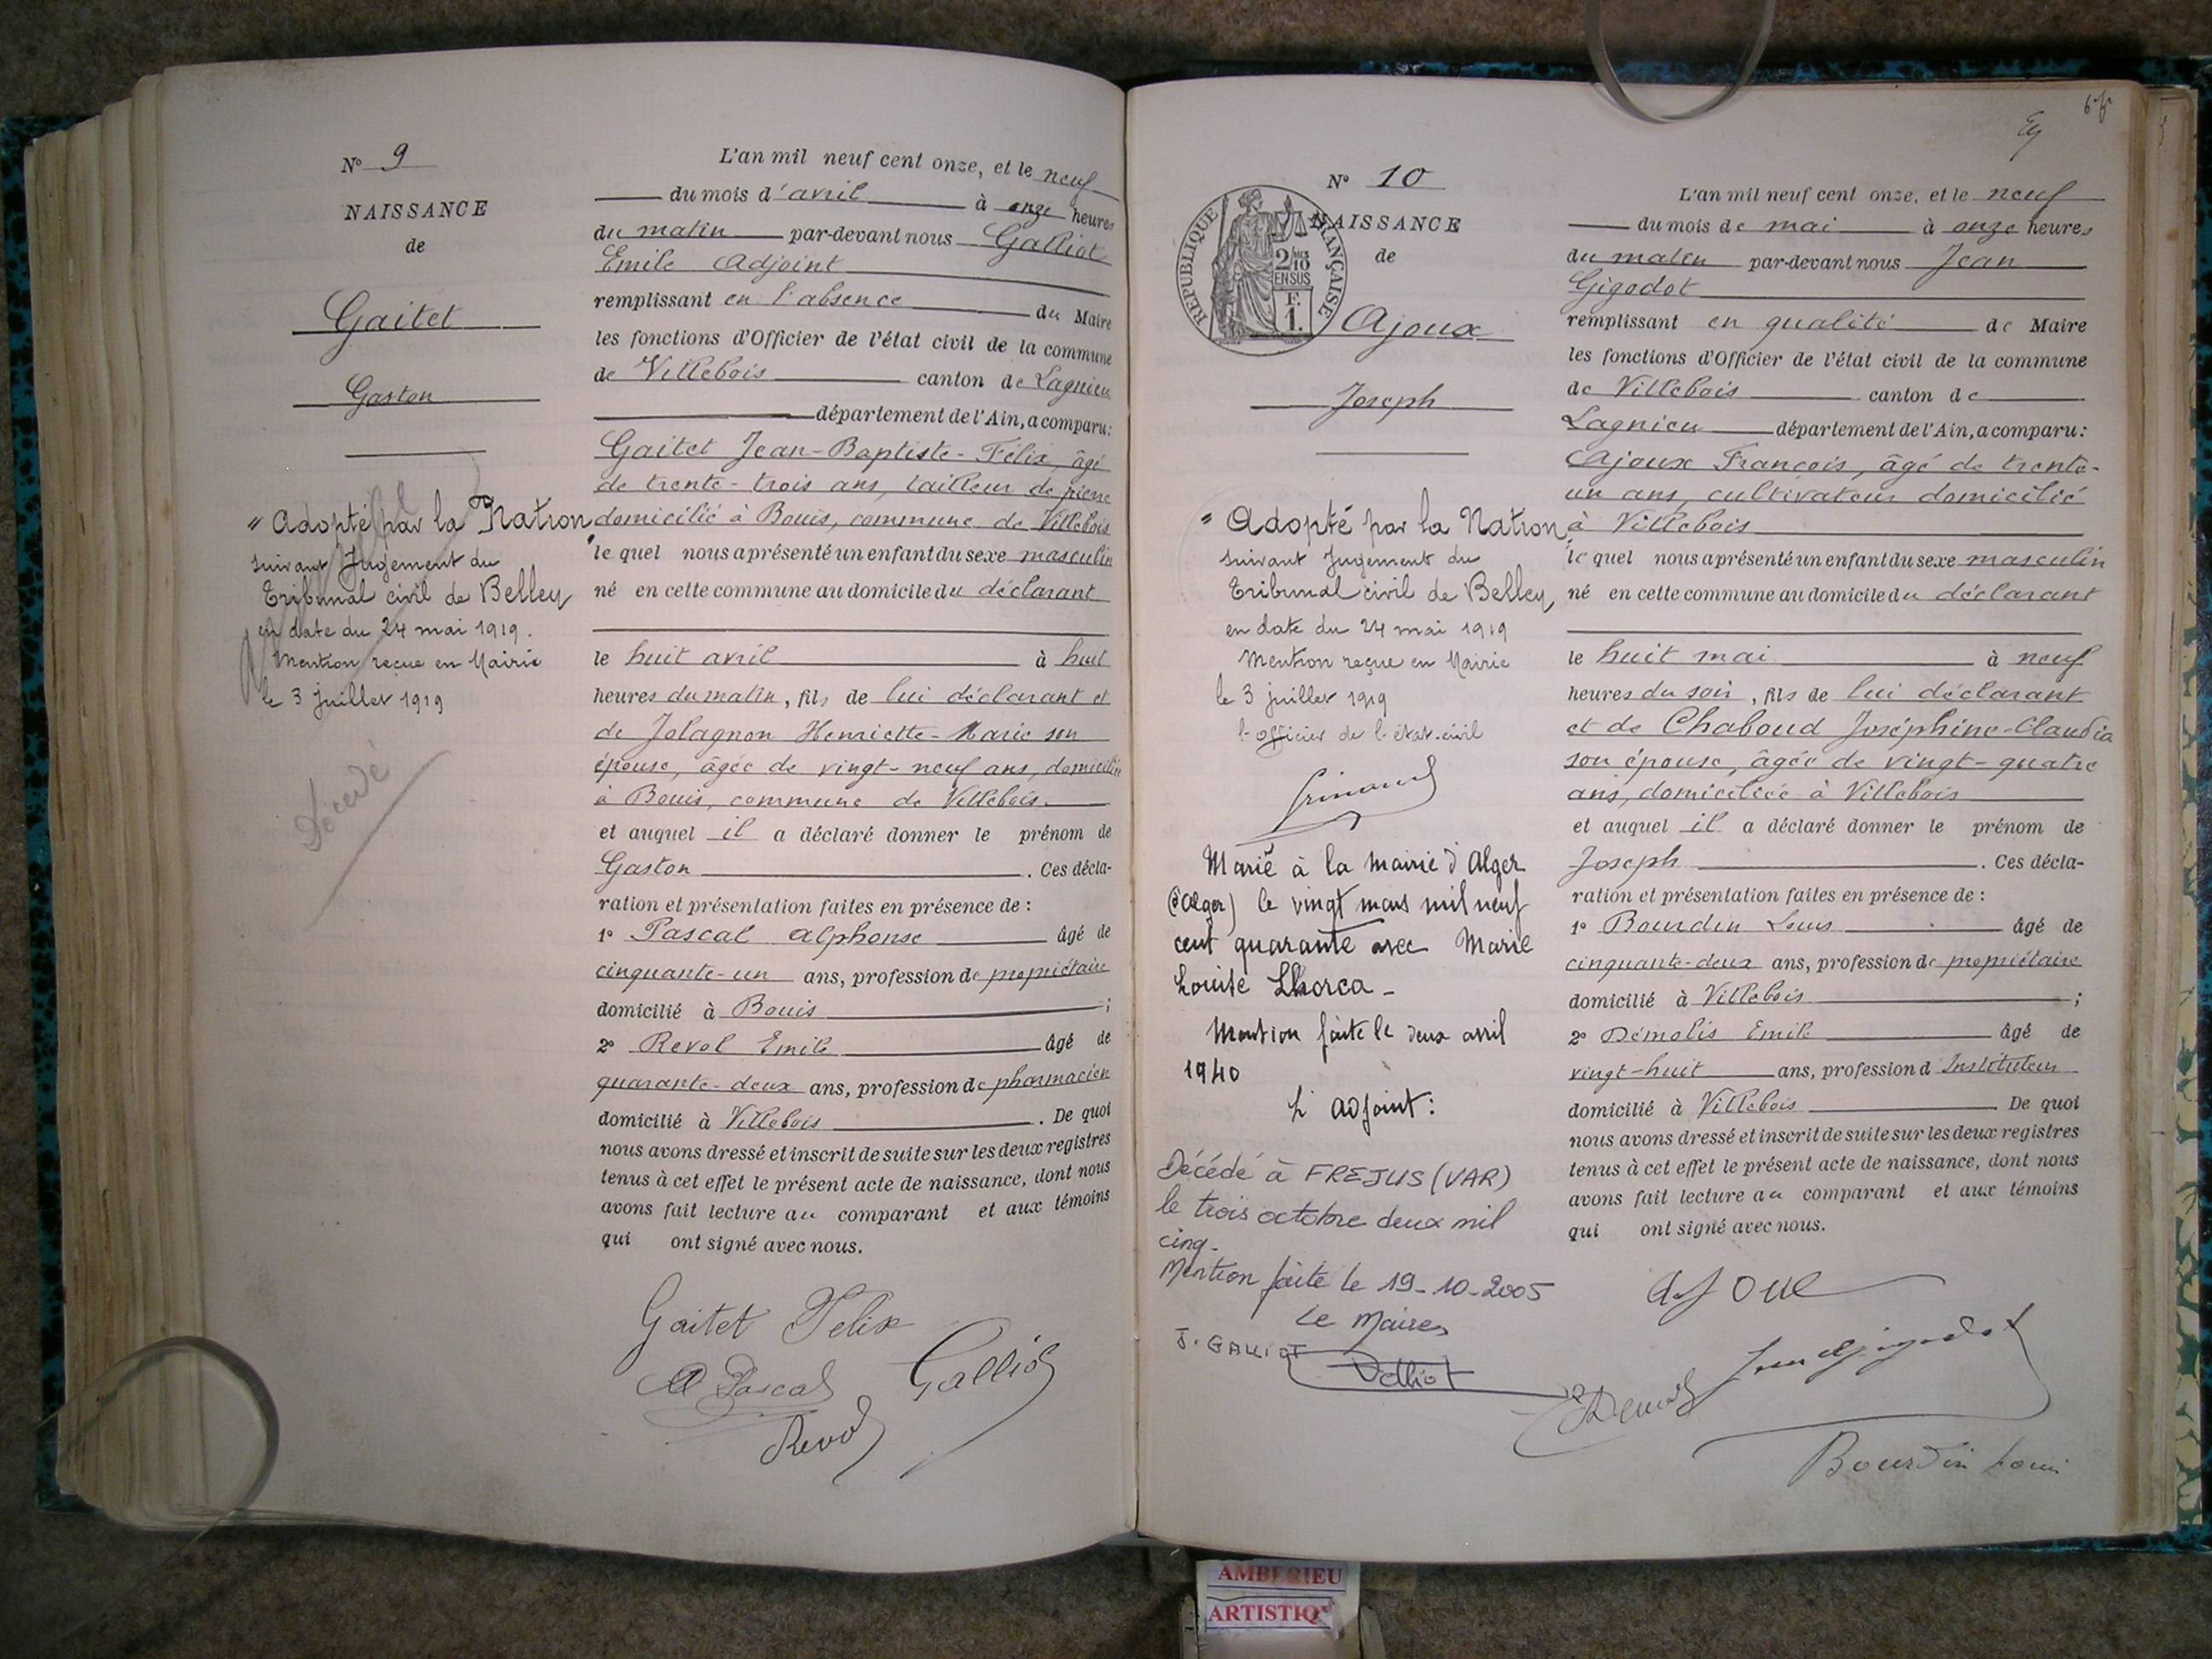 N° 9
NAISSANCE
de
Gaitet
Gaston
" Adopté par la Nation "
suivant Jugement du
Tribunal civil de Belley
en date du 24 mai 1919.
Mention reçue en Mairie
le 3 juillet 1919
Décédé
L'an mil neuf cent onze, et le neuf
du mois d'avril à onze heures
du matin par-devant nous Galliot
Emile Adjoint
remplissant en l'absence du Maire
les fonctions d'Officier de l'état civil de la commune
de Villebois canton de Lagnieu
département de l'Ain, a comparu:
Gaitet Jean-Baptiste-Félix, âgé
de trente-trois ans, tailleur de pierre
domicilié à Bouis, commune de Villebois
le quel nous a présenté un enfant du sexe masculin
né en cette commune au domicile du déclarant
le huit avril à huit
heures du matin, fils de lui déclarant et
de Jolagnon Henriette-Marie son
épouse, âgée de vingt-neuf ans, domiciliée
à Bouis, commune de Villebois.
et auquel il a déclaré donner le prénom de
Gaston . Ces décla-
ration et présentation faites en présence de :
1° Pascal Alphonse âgé de
cinquante-un ans, profession de propriétaire
domicilié à Bouis ;
2° Revol Emile âgé de
quarante-deux ans, profession de pharmacien
domicilié à Villebois . De quoi
nous avons dressé et inscrit de suite sur les deux registres
tenus à cet effet le présent acte de naissance, dont nous
avons fait lecture au comparant et aux témoins
qui ont signé avec nous.
Gaitet Felix
A Pascal Galliot
Revol
N° 10
NAISSANCE
de
REPUBLIQUE FRANÇAISE
2/10
EN SUS
F.
1.
Ajoux
Joseph
" Adopté par la Nation "
suivant Jugement du
Tribunal civil de Belley
en date du 24 mai 1919
Mention reçue en Mairie
le 3 juillet 1919
l'officier de l'état-civil
Marié à la mairie d'Alger
(Alger) le vingt mars mil neuf
cent quarante avec Marie
Louise Llhorca -
Mention faite le deux avril
1940
L'adjoint:
Décédé à FREJUS (VAR)
le trois octobre deux mil
cinq.
Mention faite le 19-10-2005
Le Maire
J. GALLIOT
Galliot
L'an mil neuf cent onze, et le neuf
du mois de mai à onze heures
du matin par-devant nous Jean
Gigodot
remplissant en qualité de Maire
les fonctions d'Officier de l'état civil de la commune
de Villebois canton de
Lagnieu département de l'Ain, a comparu:
Ajoux François, âgé de trente-
un ans, cultivateur domicilié
à Villebois
le quel nous a présenté un enfant du sexe masculin
né en cette commune au domicile du déclarant
le huit mai à neuf
heures du soir, fils de lui déclarant
et de Chaboud Joséphine-Claudia
son épouse, âgée de vingt-quatre
ans, domiciliée à Villebois
et auquel il a déclaré donner le prénom de
Joseph . Ces décla-
ration et présentation faites en présence de :
1° Bourdin Louis âgé de
cinquante-deux ans, profession de propriétaire
domicilié à Villebois ;
2° Démolis Emile âgé de
vingt-huit ans, profession d'Instituteur
domicilié à Villebois De quoi
nous avons dressé et inscrit de suite sur les deux registres
tenus à cet effet le présent acte de naissance, dont nous
avons fait lecture au comparant et aux témoins
qui ont signé avec nous.
Bourdin Louis
AMBERIEU
ARTISTIQ